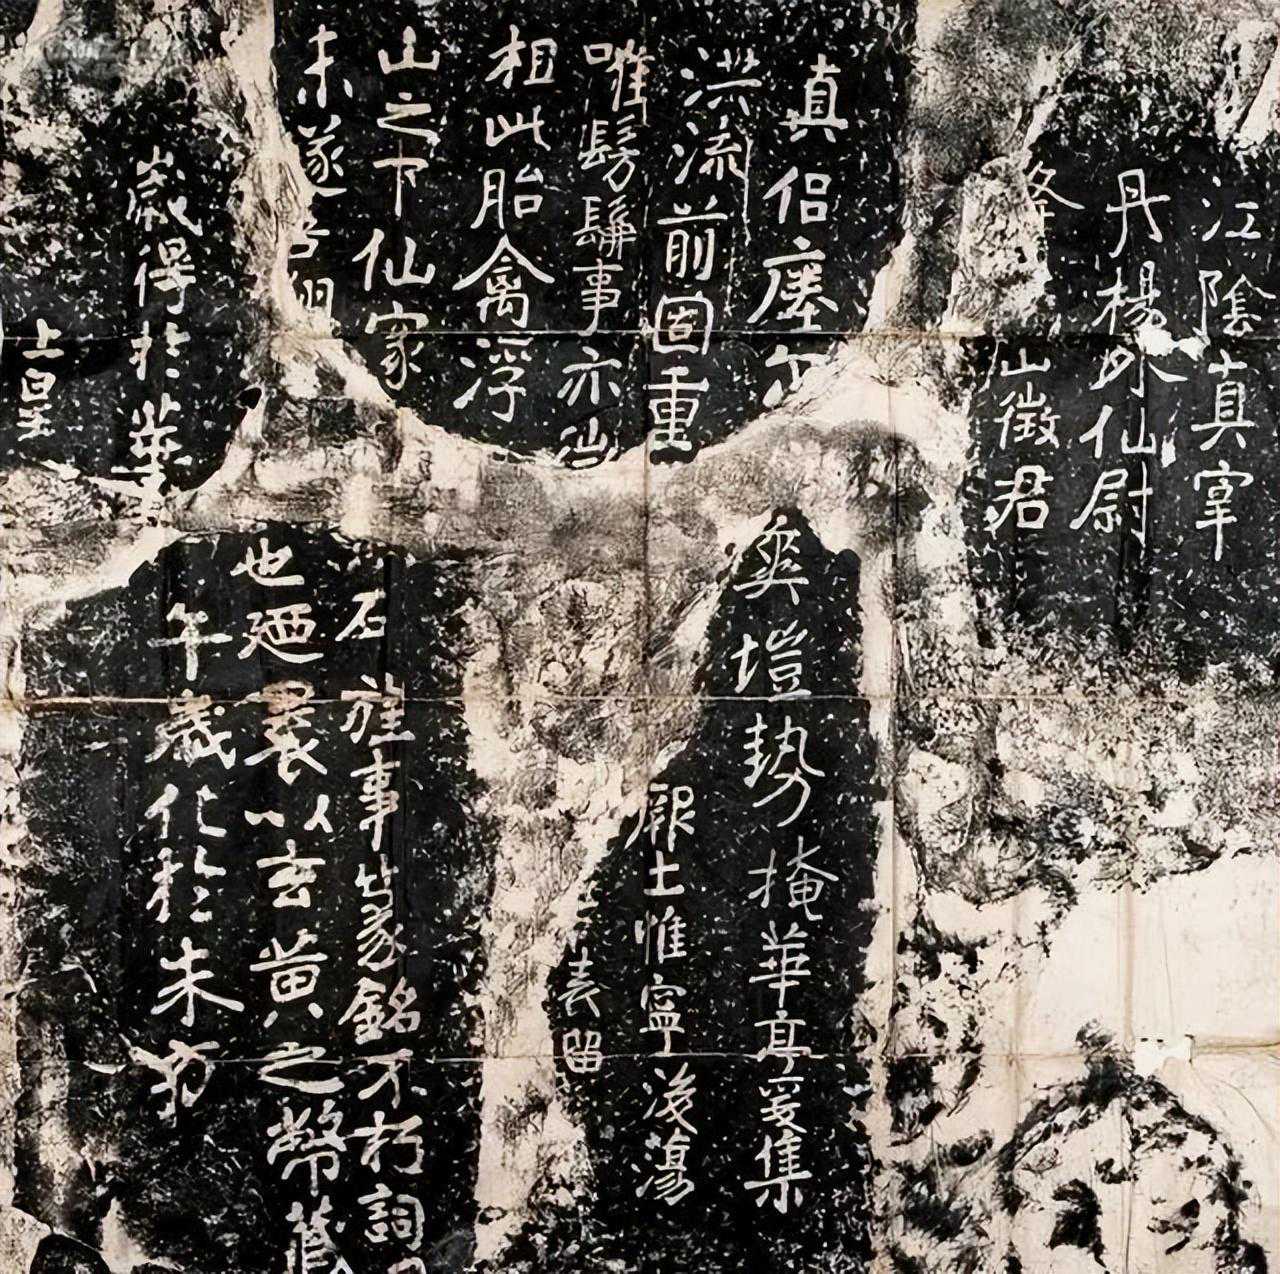 江陰真宰
丹楊外仙尉
山徵君
真侶瘞尒
爽塏勢掩華亭爰集
洪流前固重
厥土惟寧後蕩
唯髣髴事亦
表留
相此胎禽浮
山之下仙家
石旌事篆銘不朽詞曰
未遂吾翔
也迺裹以玄黃之幣藏
歲得於華
午歲化於朱方
上皇